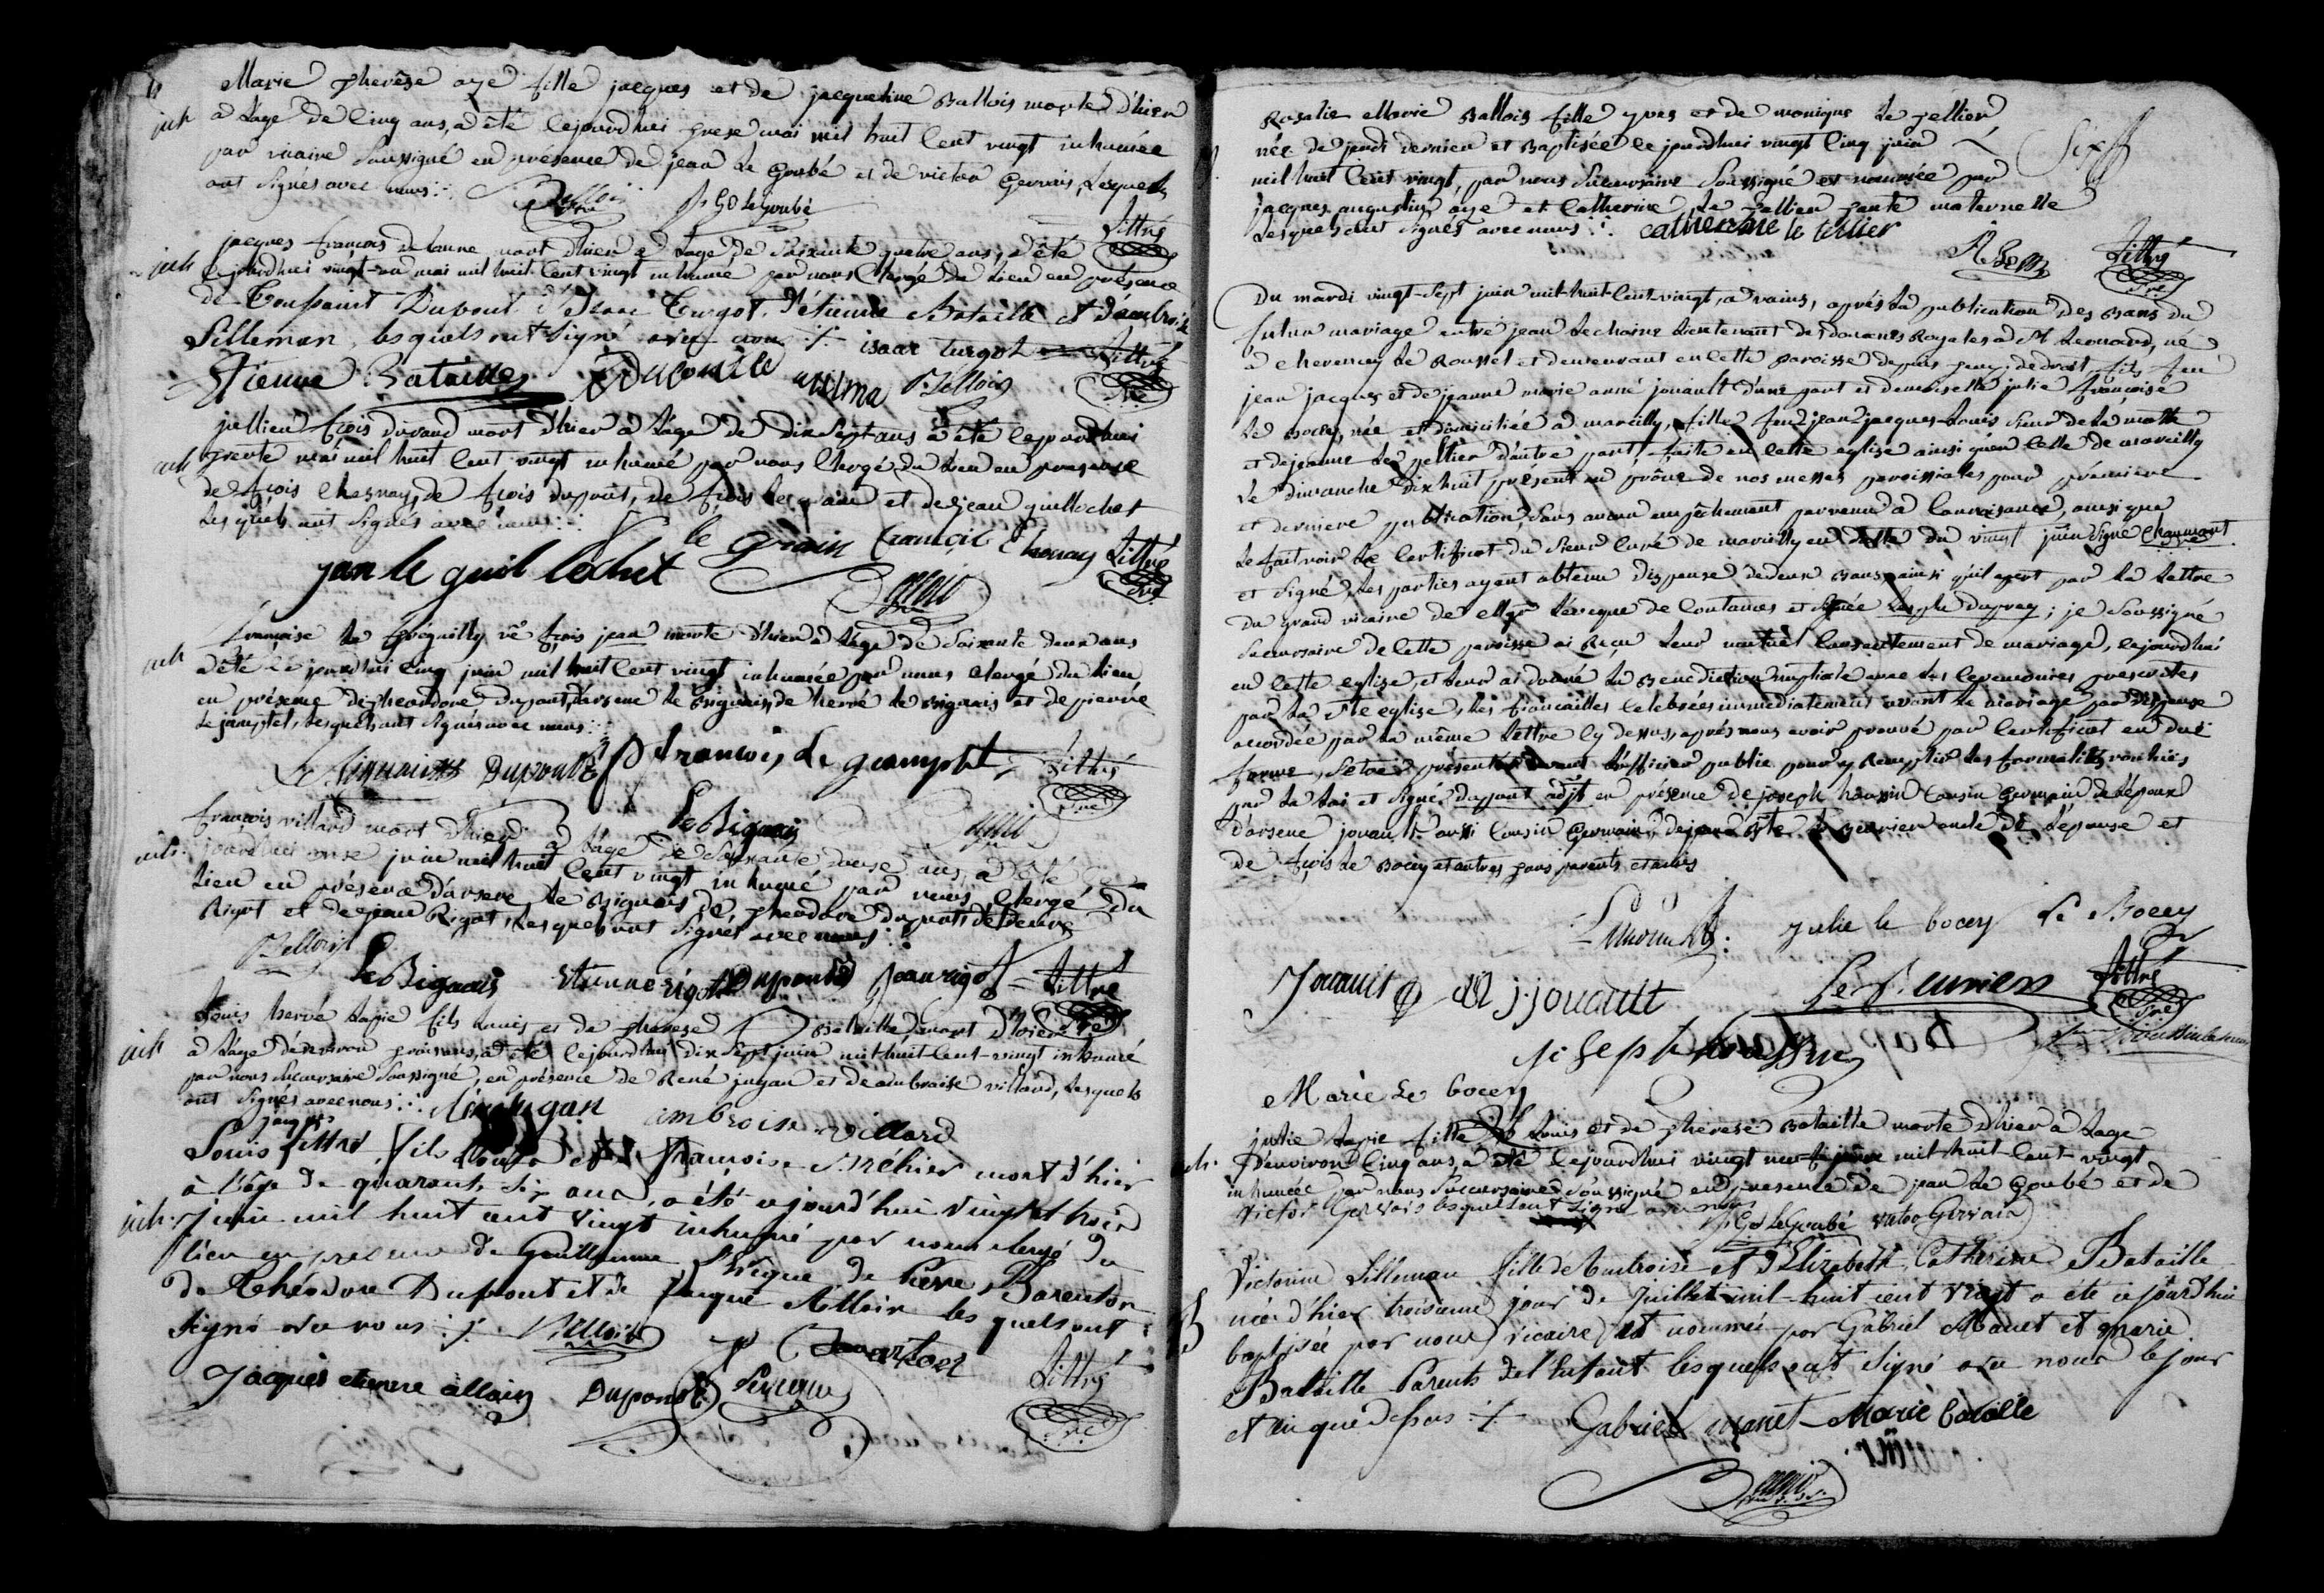 Marie therèse aze fille jacques et de jacqueline Ballois morte d'hier
inh
à lage de cinq ans, a été cejourdhui treze mai mil huit cent vingt inhumée
par vicaire soussigné en présence de jean le Goubé et de victor Gervais, lesquels
ont signés avec nous
J. GD le goubé
Littré
jacques françois delaune mort d'hier a lage de soixante quatre ans, a été
inh
cejourdhui vingt-un mai mil huit cent vingt inhumé par nous clergé du lieu en présence
de Toussaint Dupont d'isaac Turgot, d'étienne Bataille et d'ambroise
Lilleman, lesquels ont signé avec nous
isaac turgot
Littré
Etienne Bataille
jullien fçois durand mort d'hier a lage de dix sept ans a été cejourdhui
inh
trente mai mil huit cent vingt inhumé par nous clergé du lieu en presence
de fçois chesnay, de fçois dupont, de fçois le grain et de jean guillochet
lesquels ont signés avec nous
le grain françois Chesnay Littré
jean le guil lochet
françoise le fréquilly vē fçois jean morte d'hier a lage de soixante deux ans
inh
a été cejourdhui cinq juin mil huit cent vingt inhumée par nous clergé du lieu
en présence de theodore dupont, d'arsene le Bignais, de hervé le Bignais et de pierre
le jamptel, lesquels ont signés avec nous
Le Bignais Dupont Littré
Le Bignais
françois villard mort d'hier a lage de soixante douse ans, a été ce
inh
jourdhui onse juin mil huit cent vingt inhumé par nous clergé du
lieu en présence d'arsene le Bignais de theodore dupont, d'etienne
Rigot et de jean Rigot, lesquels ont signés avec nous
Le Bignais Etienne rigot Dupont Jean rigot Littré
Louis hervé lapie fils louis et de therese Bataille mort d'hier
inh
à lage d'environ trois ans, a été cejourdhui dix sept juin mil-huit-cent-vingt inhumé
par nous succursaire soussigné, en présence de René jugan et de ambroise villard, lesquels
ont signés avec nous
René jugan ambroise villard
jacques
Louis Littré fils louis et de françoise Mréhier mort d'hier
à l'âge de quarante six ans, a été cejourd'hui vingt et trois
inh
juin mil huit cent vingt inhumé par nous clergé du
lieu en presence de Guillaume de Pierre Barenton
de Théodore Dupont et de jacques Allain lesquels ont
signé avec nous
Jacques etienne allain Dupont Littré
Rosalie Marie Ballois fille yves et de monique le tellier
née de jeudi dernier et Baptisée cejourdhui vingt cinq juin
mil huit cent vingt, par nous succursaire soussigné et nommée par
jacques augustin aze et Catherine le tellier tante maternelle
lesquels ont signés avec nous catherine le tellier
Littré
Du mardi vingt-sept juin mil-huit-cent-vingt, a vains, après la publication des Bans du
futur mariage entre jean lechaine lieutenant des douanes Royales a St Leonard, né
a cheverncy le Roussel et demeurant en cette paroisse depuis peu, de droit, fils feu
jean jacques et de jeanne marie anne jouault d'une part et demoiselle julie françoise
le Bocey, née et domiciliée a marcilly, fille feu jean jacques-louis sieur de la motte
et de jeanne le tellier d'autre part, faite en cette eglise ainsi qu'en celle de marcilly
le dimanche dix huit présent au prône de nos messes paroissiales pour première
et dernière publication, sans aucun empêchement parvenu a connoissance, ainsi que
le fait voir le certificat du sieur curé de marcilly en datte du vingt juin signé chaumont
et signé, les parties ayant obtenu dispense de deux Bans ainsi qu'il apert par la lettre
du grand vicaire de Mgr l'éveque de Coutances et signée duprey; je soussigné
succursaire de cette paroisse ai Reçu leur mutuel consentement de mariage, cejourdhui
en cette eglise, et leur ai donné la Bénédiction nuptiale avec les cérémonies prescrites
par la Ste eglise, les fiançailles celebrées immediatement avant le mariage par dispense
accordée par la même lettre cy dessus, après nous avoir prouvé par certificat en due
forme, s'etre présentés devant l'officier public pour y Remplir les formalités voulues
par la loi et signé dupont adjt en présence de joseph houssin cousin germain de l'époux
d'arsene jouault aussi cousin germain, de jean Bte le Beurier oncle de l'épouse et
de fçois le Bocey et autres tous parents et amis
julie le bocey Le Bocey
Jouault J. jouault Le Beurier Littré
joseph houssin
Marie Le bocey
julie lapie fille louis et de therese Bataille morte d'hier a lage
inh.
d'environ cinq ans, a été cejourdhui vingt neuf juin mil-huit-cent-vingt
inhumée par nous succursaire soussigné en presence de jean le Goubé et de
victor Gervais lesquels ont signé avec nous
J. GD Le Goubé victor Gervais
Victorine Lilleman fille de Ambroise et d'Elizabeth Catherine Bataille
B
née d'hier troisieme jour de juillet mil-huit cent vingt a été cejourd'hui
baptisée par nous vicaire et nommée par Gabriel Manet et marie
Bataille Parents de l'enfant lesquels ont signé avec nous le jour
et an que dessus
Gabriel manet Marie bataille